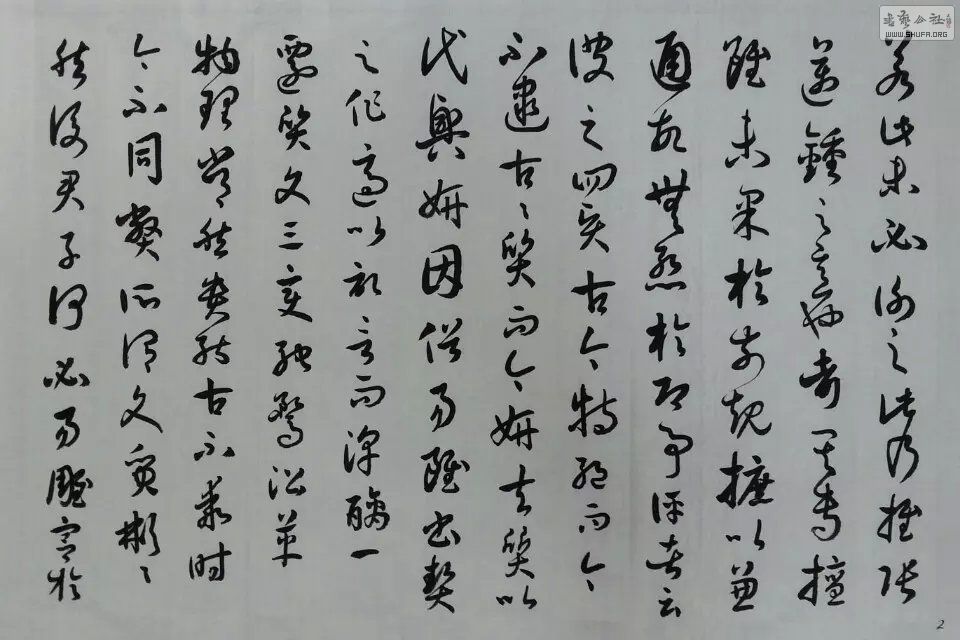 若此未必謝之此乃推張
邁鍾之意也考其專擅
雖未果於前規摭以兼
通故無慙於即事評者云
彼之四賢古今特絕而今
不逮古〻質而今妍夫質以
代興妍因俗易雖書契
之作適以記言而淳醨一
遷質文三變馳騖沿革
物理常然貴能古不乖時
今不同弊所謂文質彬〻
然後君子何必易雕宮於
書藝公社
WWW.SHUFA.ORG
2